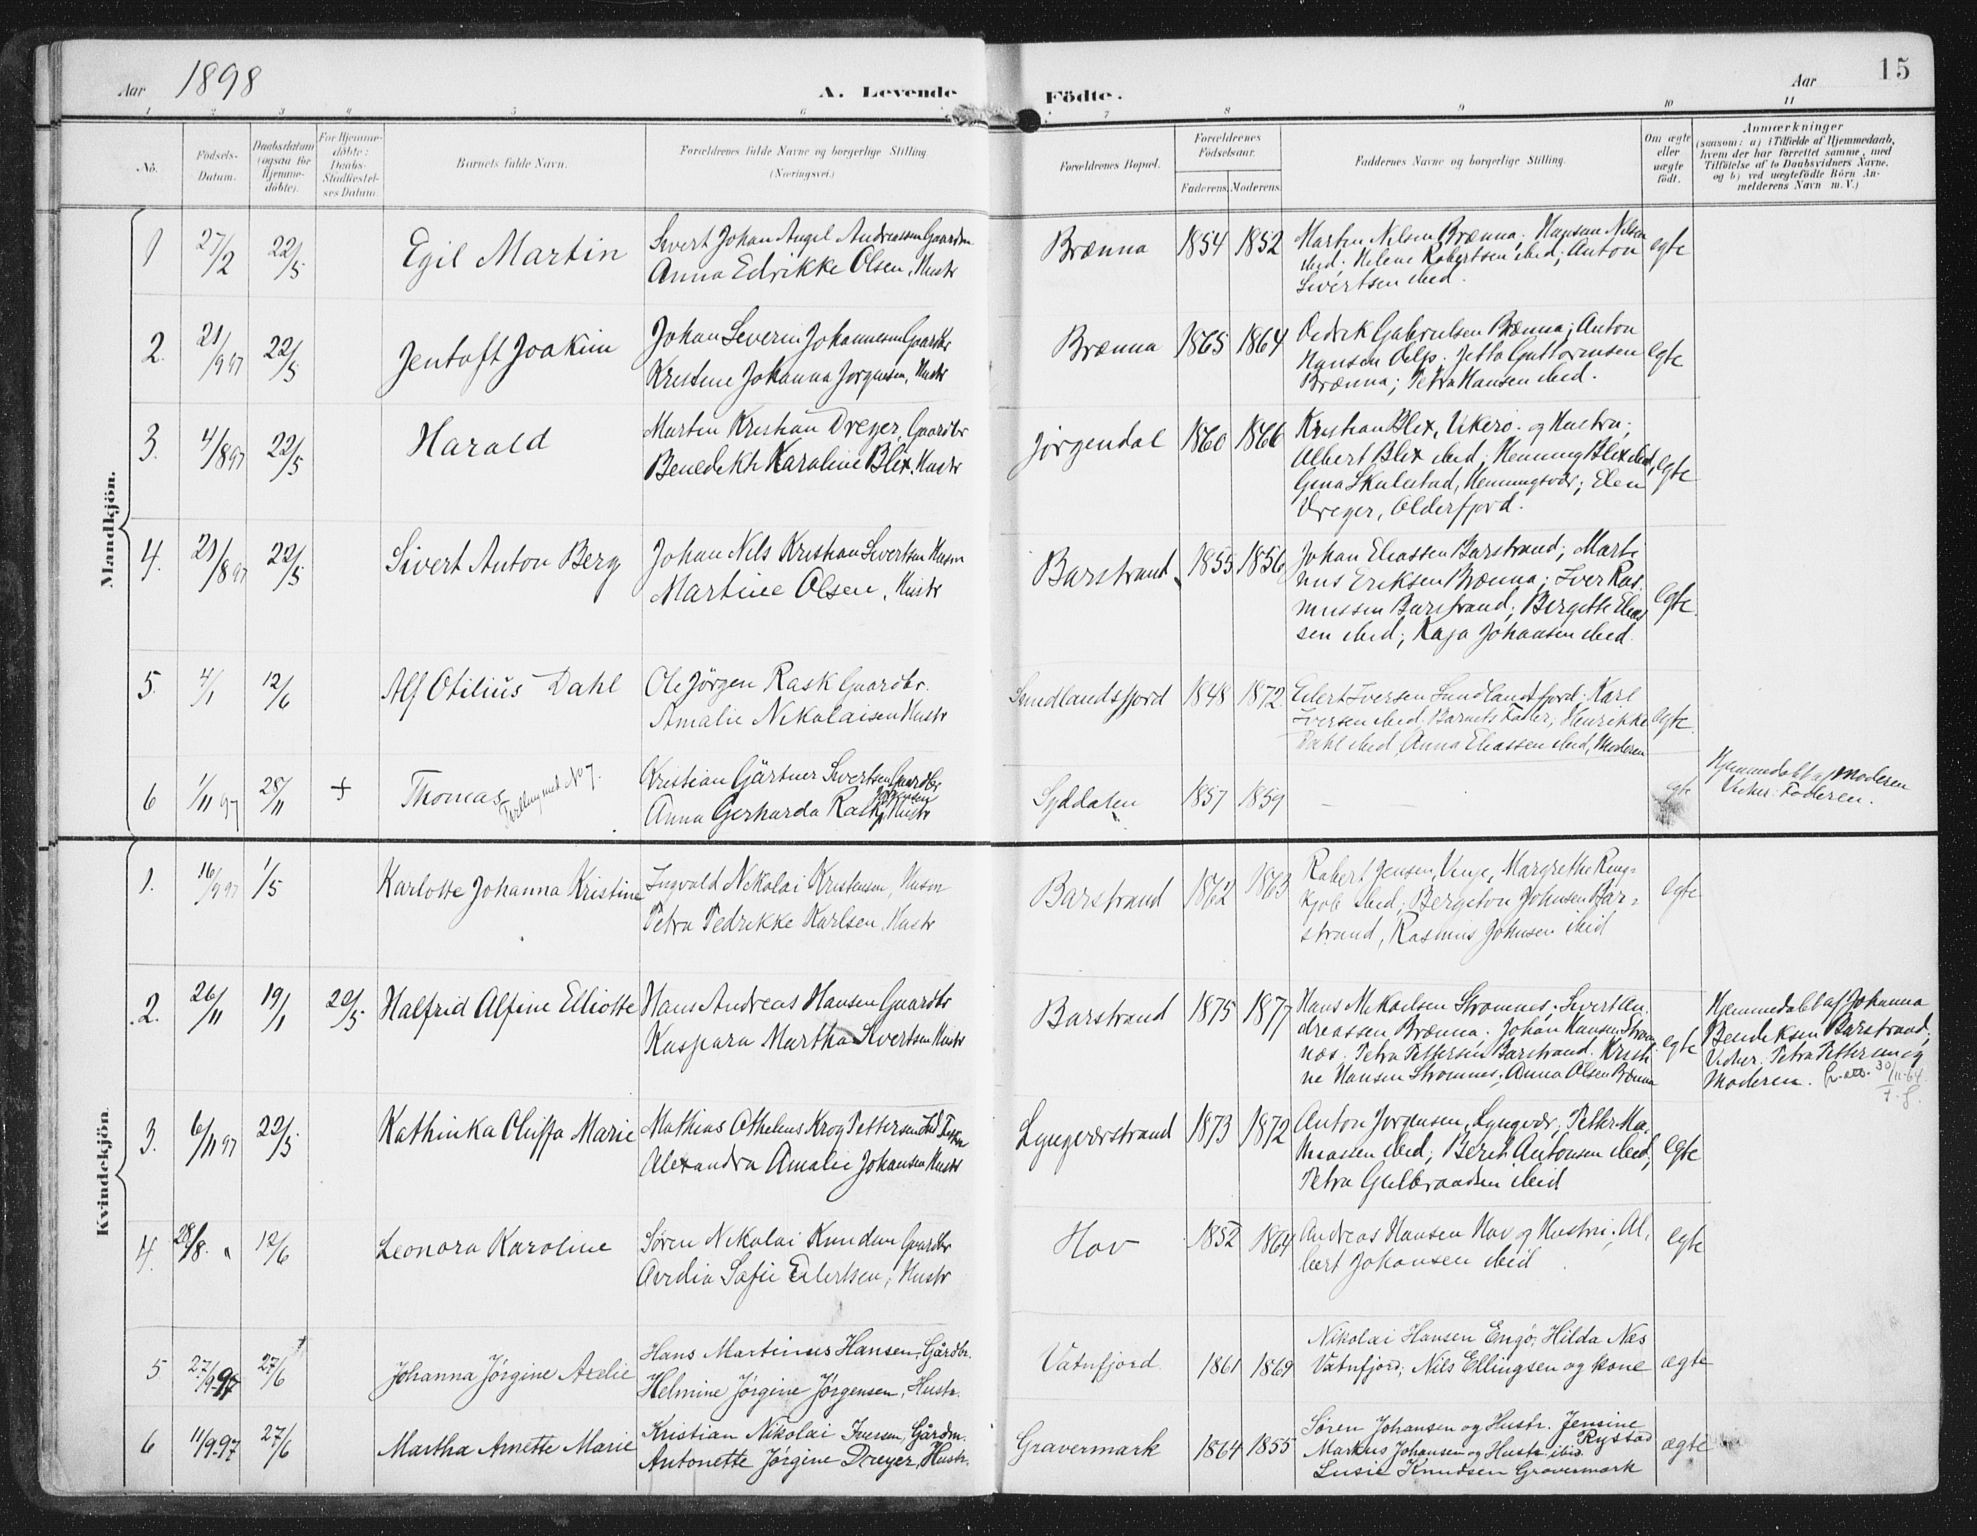 Aar 1898
A. Levende Födte.
Aar
15
1 2 3 4 5 6 7 8 9 10 11
No.
Födsels-
Datum.
Daabsdatum
(ogsaa for
Hjemme-
döbte).
For Hjemme-
döbte:
Daabs-
Stadfæstel-
ses Datum.
Barnets fulde Navn.
Forældrenes fulde Navne og borgerlige Stilling
(Næringsvei.)
Forældrenes Bopæl.
Forældrenes
Födselsaar.
Faderens. Moderens.
Faddernes Navne og borgerlige Stilling.
Om ægte
eller
uægte
födt.
Anmærkninger
(saasom: a) i Tilfælde af Hjemmedaab,
hvem der har forrettet samme, med
Tilföielse af to Daabsvidners Navne,
og b) ved uægtefödte Börn An-
melderens Navn m. V.)
Mandkjön.
1 27/2 22/5 Egil Martin
Sivert Johan Angel Andreassen Gaardm
Anna Edrikke Olsen, Hustr
Brænna 1854 1852
Martin Nilsen Brænna; Hansine Nilsen
ibid; Helene Robertsen ibid; Anton
Sivertsen ibid.
egte
2. 21/9 97 22/5 Jentoft Joakim
Johan Severin Johannesen Gaardbr
Kristine Johanna Jorgensen, Hustr
Brænna 1865 1864
Dedrik Gabrielsen Brænna; Anton
Hansen Delp. Jetta Guttormsen
Brænna; Petra Hansen ibid.
egte
3. 4/8 97 22/5 Harald
Martin Kristian Dreyer, Gaardbr
Benedikte Karoline Blix, Hustr
Jörgendal 1860 1866
Kristian Blix, Vikerö. og Hustru;
Albert Blix ibid; Henning Blix ibid,
Gina Skulestad, Henningsvær; Elen
Dreyer, Olderfjord.
egte
4. 21/8 97 22/5 Sivert Anton Berg
Johan Nils Kristian Sivertsen Husm
Martine Olsen, Hustr
Barstrand 1855 1856
Johan Eliassen Barstrand; Marti-
nus Eriksen Brænna; Iver Ras-
mussen Barstrand; Bergitte Elias
sen ibid; Kaja Johansen ibid.
egte
5. 4/1 12/6 Alf Otilius Dahl
Ole Jörgen Rask Gaardbr.
Amalie Nikolaisen Hustr
Sundlandsfjord 1848 1872
Eilert Iversen Sundlandsfjord; Karl
Iversen ibid, Barnets Fader; Henrikke
Dahl ibid, Anna Eliassen ibid, Moderen
egte
6 1/11 97 28/11 + Thomas
Tvilling med No 7.
Kristian Gärtner Sivertsen Gaardbr
Jörgensen
Anna Gerharda Rask, Hustr
Syddalen 1857 1859 — —
egte
Hjemmedöbt af Moderen
Vidne: Faderen.
Kvindekjön.
1. 16/9 97 1/5 Karlotte Johanna Kristine
Ingvald Nikolai Kristensen, Husm
Petra Pedrikke Karlsen, Hustr
Barstrand 1862 1863
Robert Jensen, Vinje, Margrethe Ring-
kjöb ibid; Bergeton Johnsen Bar-
strand, Rasmus Johnsen ibid
egte
2. 26/11 19/1 22/5 Halfrid Alfine Elliotte
Hans Andreas Hansen Gaardbr
Kaspara Martha Sivertsen Hustr
Barstrand 1875 1877
Hans Mikaelsen Strømnes; Sivert An-
dreassen Brænna. Johan Hansen Strøm
næs. Petra Pettersen Barstrand. Kristi-
ne Hansen Strømnes; Anna Olsen Brænna
egte
Hjemmedöbt af Johanna
Bendiksen Barstrand;
Vidner. Petra Pettersen og
Moderen.
3. 6/11 97 22/5 Kathinka Oluffa Marie
Mathias Athelius Krog Pettersen
Alexandra Amalie Johansen Hustr
Lyngværstrand 1873 1872
Anton Jorgensen, Lyngvær; Petter Ma-
thiassen ibid; Berit Antonsen ibid;
Petra Gulbrandsen ibid
egte
4. 28/8 " 12/6 Leonora Karoline
Søren Nikolai Knudsen Gaardbr
Ovedia Sofie Eilertsen, Hustr
Hov 1852 1864
Andreas Hansen Hov og Hustru; Al-
bert Johansen ibid
egte
5 27/9-97 27/6 Johanna Jörgine Axelie
Hans Martinus Hansen, Gårdbr.
Helmine Jörgine Jörgensen, Hustr.
Vatnfjord 1861 1869
Nikolai Hansen Engö, Hilda Næs
Vatnfjord; Nils Ellingsen og kone
ægte
6 11/9-97 27/6 Martha Arnette Marie
Kristian Nikolai Iversen, Gårdm.
Antonette Jörgine Dreyer, Hustr.
Gravermark 1864 1855
Søren Johansen og Hustr. Jensine
Rystad
Markus Johansen og Hustr ibid.
Lusie Knudsen Gravermark
ægte